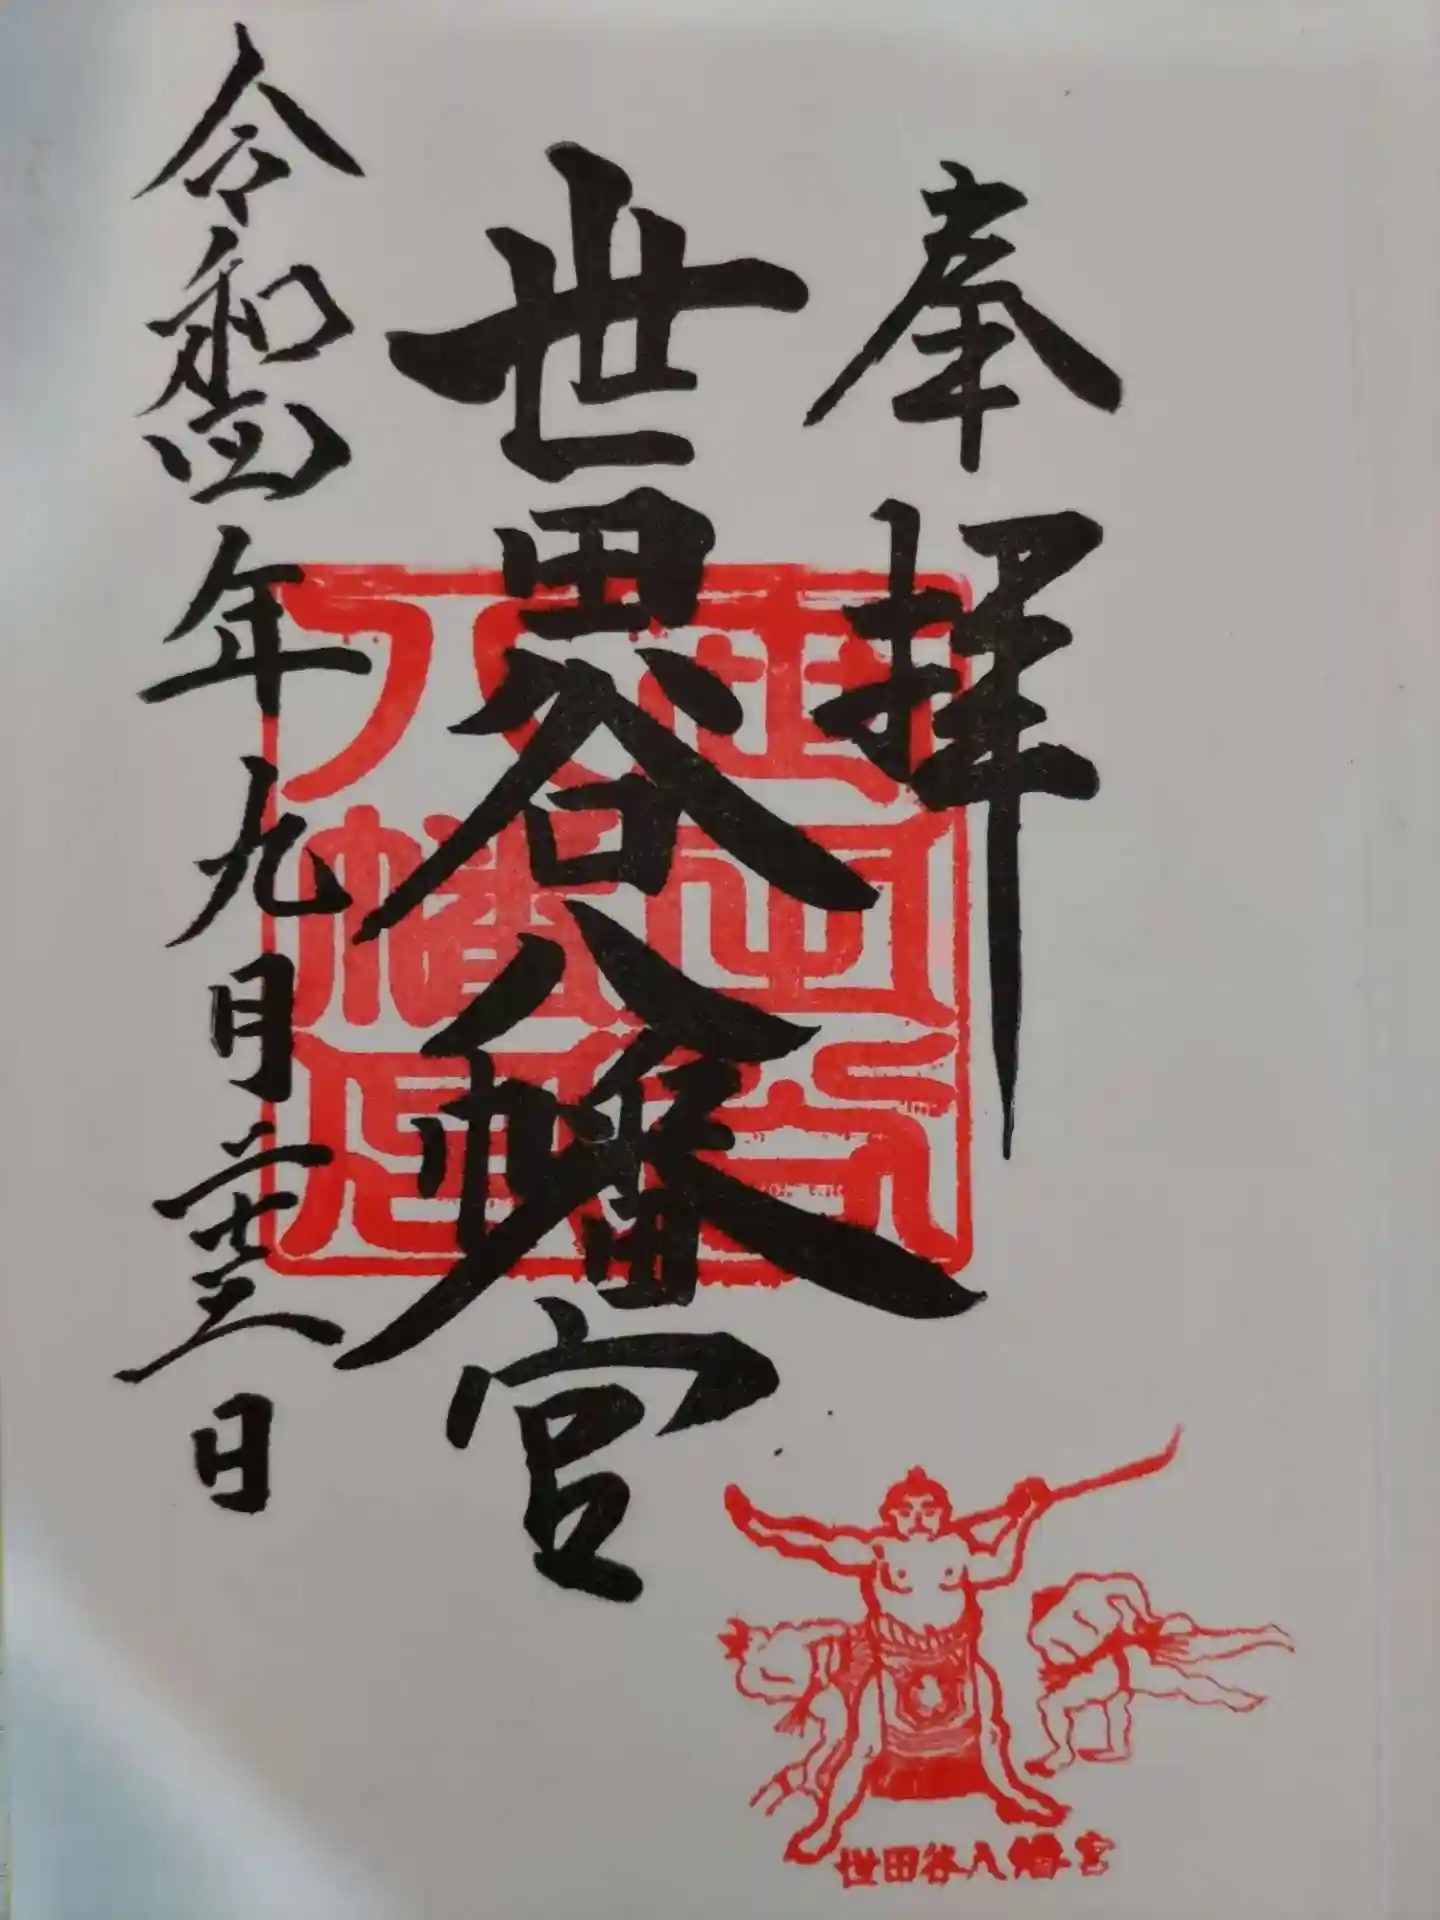 奉拝
世田谷八幡宮
令和四年九月二十三日
世田谷八幡宮
世田谷八幡宮